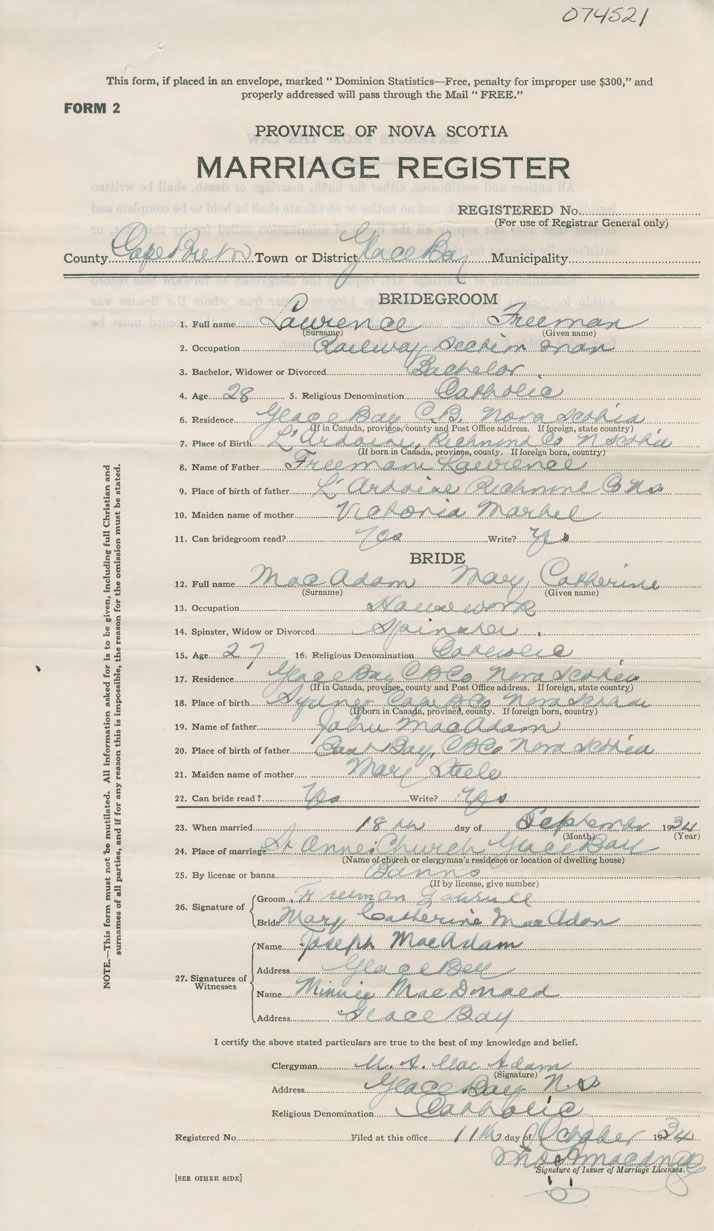 074521
This form, if placed in an envelope, marked " Dominion Statistics—Free, penalty for improper use $300," and
properly addressed will pass through the Mail " FREE."
FORM 2
PROVINCE OF NOVA SCOTIA
MARRIAGE REGISTER
REGISTERED No.
(For use of Registrar General only)
County Cape Breton Town or District Glace Bay Municipality
BRIDEGROOM
1. Full name Lawrence Freeman
(Surname) (Given name)
2. Occupation Railway Section man
3. Bachelor, Widower or Divorced Bachelor
4. Age 28 5. Religious Denomination Catholic
6. Residence Glace Bay C.B. Nova Scotia
(If in Canada, province, county and Post Office address. If foreign, state country)
7. Place of Birth L'Ardoise, Richmond Co N Scotia
(If born in Canada, province, county. If foreign born, country)
8. Name of Father Freeman Lawrence
9. Place of birth of father L'Ardoise Richmond Co NS
10. Maiden name of mother Victoria Martel
11. Can bridegroom read? Yes Write? Yes
BRIDE
12. Full name MacAdam Mary Catherine
(Surname) (Given name)
13. Occupation Housework
14. Spinster, Widow or Divorced Spinster
15. Age 27 16. Religious Denomination Catholic
17. Residence Glace Bay C B Co Nova Scotia
(If in Canada, province, county and Post Office address. If foreign, state country)
18. Place of birth Sydney Cape B Co Nova Scotia
(If born in Canada, province, county. If foreign born, country)
19. Name of father John MacAdam
20. Place of birth of father East Bay, C B Co Nova Scotia
21. Maiden name of mother Mary Steele
22. Can bride read? Yes Write? Yes
23. When married 18th day of September 1934
(Month) (Year)
24. Place of marriage St Anne's Church Glace Bay
(Name of church or clergyman's residence or location of dwelling house)
25. By license or banns Banns
(If by license, give number)
26. Signature of Groom Freeman
Bride Mary Catherine MacAdam
27. Signatures of Witnesses
Name Joseph MacAdam
Address Glace Bay
Name Minnie MacDonald
Address Glace Bay
I certify the above stated particulars are true to the best of my knowledge and belief.
Clergyman M. A. MacAdam
(Signature)
Address Glace Bay N.S
Religious Denomination Catholic
Registered No. Filed at this office 11th day of October 1934
Signature of Issuer of Marriage Licenses.
[SEE OTHER SIDE]
NOTE.—This form must not be mutilated. All information asked for is to be given, including full Christian and
surnames of all parties, and if for any reason this is impossible, the reason for the omission must be stated.